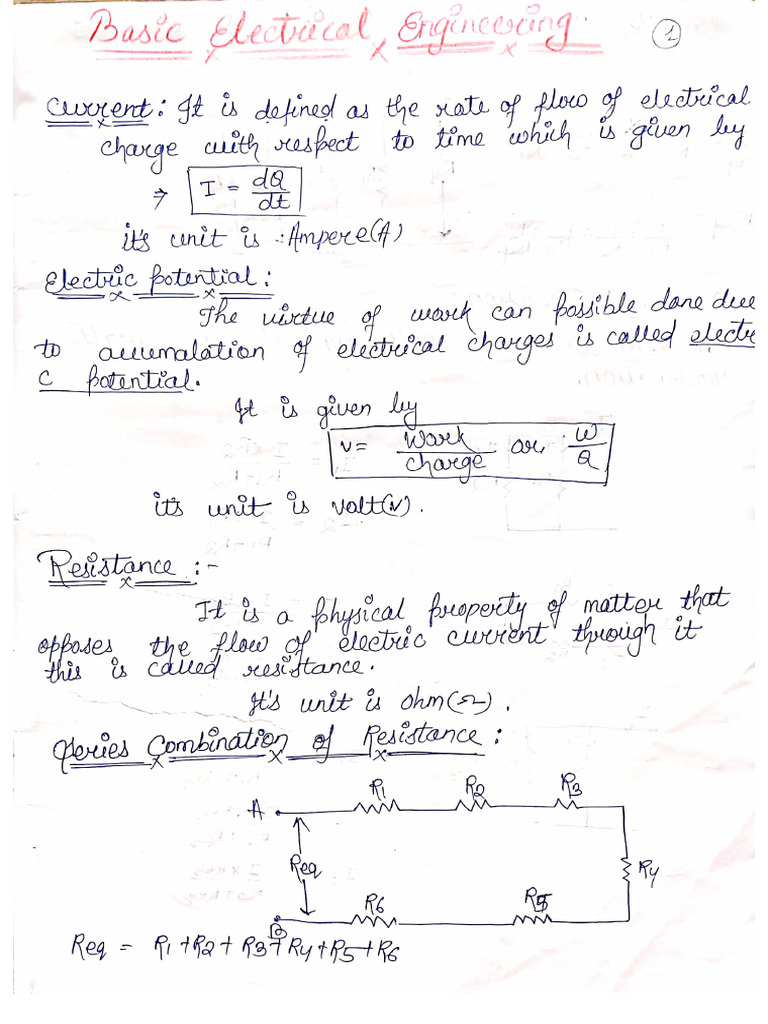 Basic Electrical Engineering
1
Current: It is defined as the rate of flow of electrical
charge with respect to time which is given by
⇒ I = dQ/dt
it's unit is :Ampere(A)
Electric potential:
The virtue of work can possible done due
to accumalation of electrical charges is called electri
c potential.
It is given by
V = Work/charge or W/Q
it's unit is volt(v).
Resistance :-
It is a physical property of matter that
opposes the flow of electric current through it
this is called resistance.
It's unit is ohm(Ω).
Series Combination of Resistance:
A R1 R2 R3
Req R4
R6 R5
B
Req = R1+R2+R3+R4+R5+R6